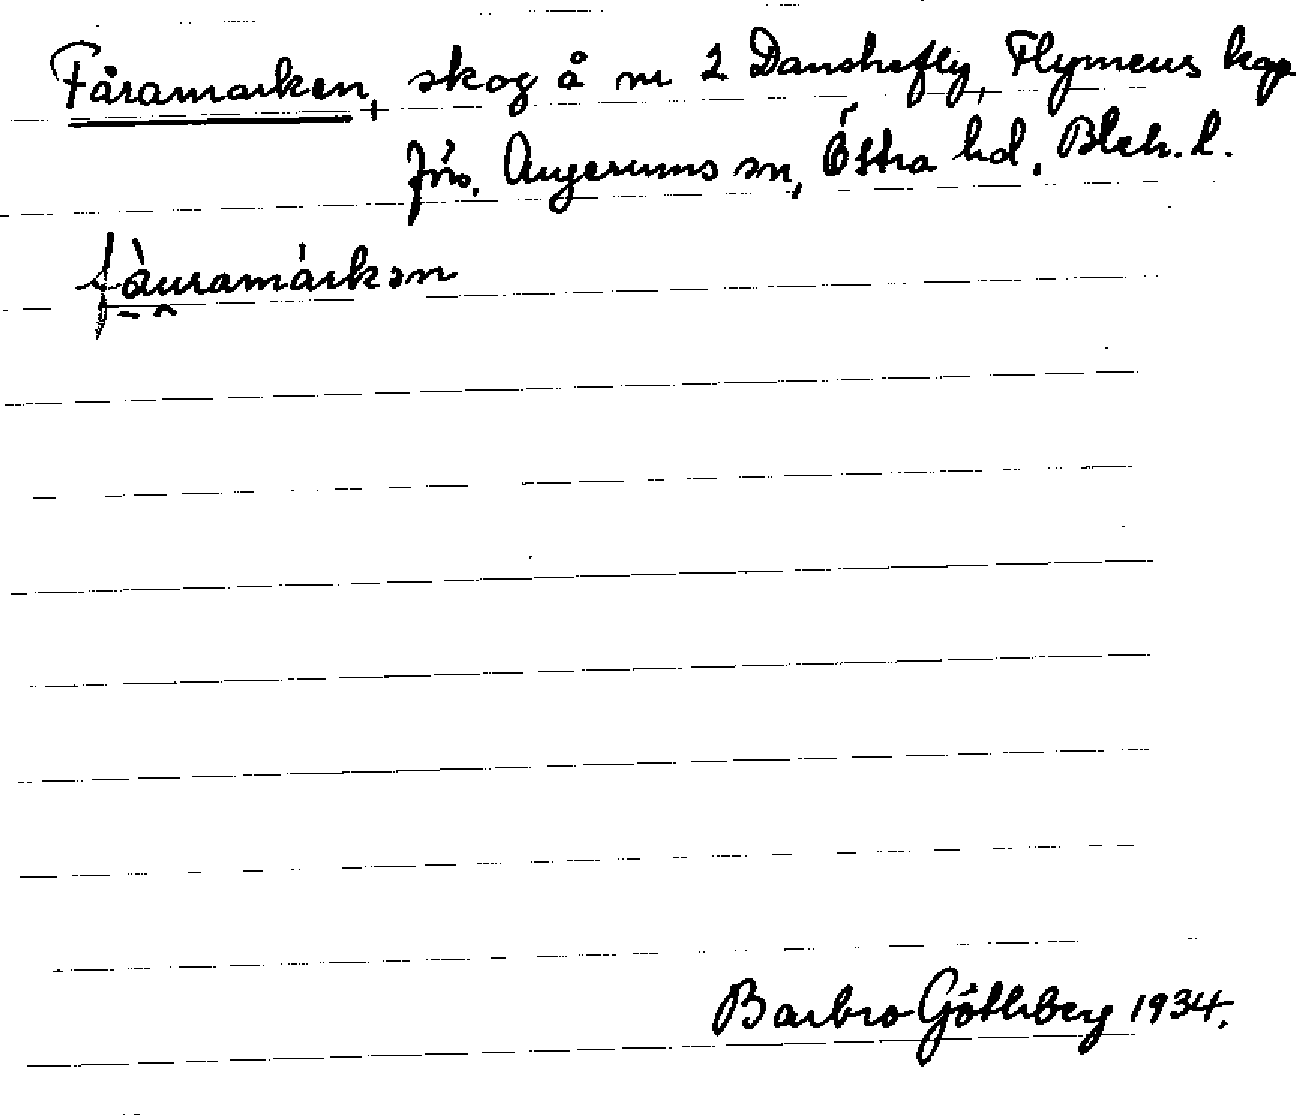 Fåramarken, skog å nr 2 Danskefly, Flymens kap
förs. Augerums sn, Östra hd, Blek. l.
fàuramárkən
Barbro Göthberg 1934.